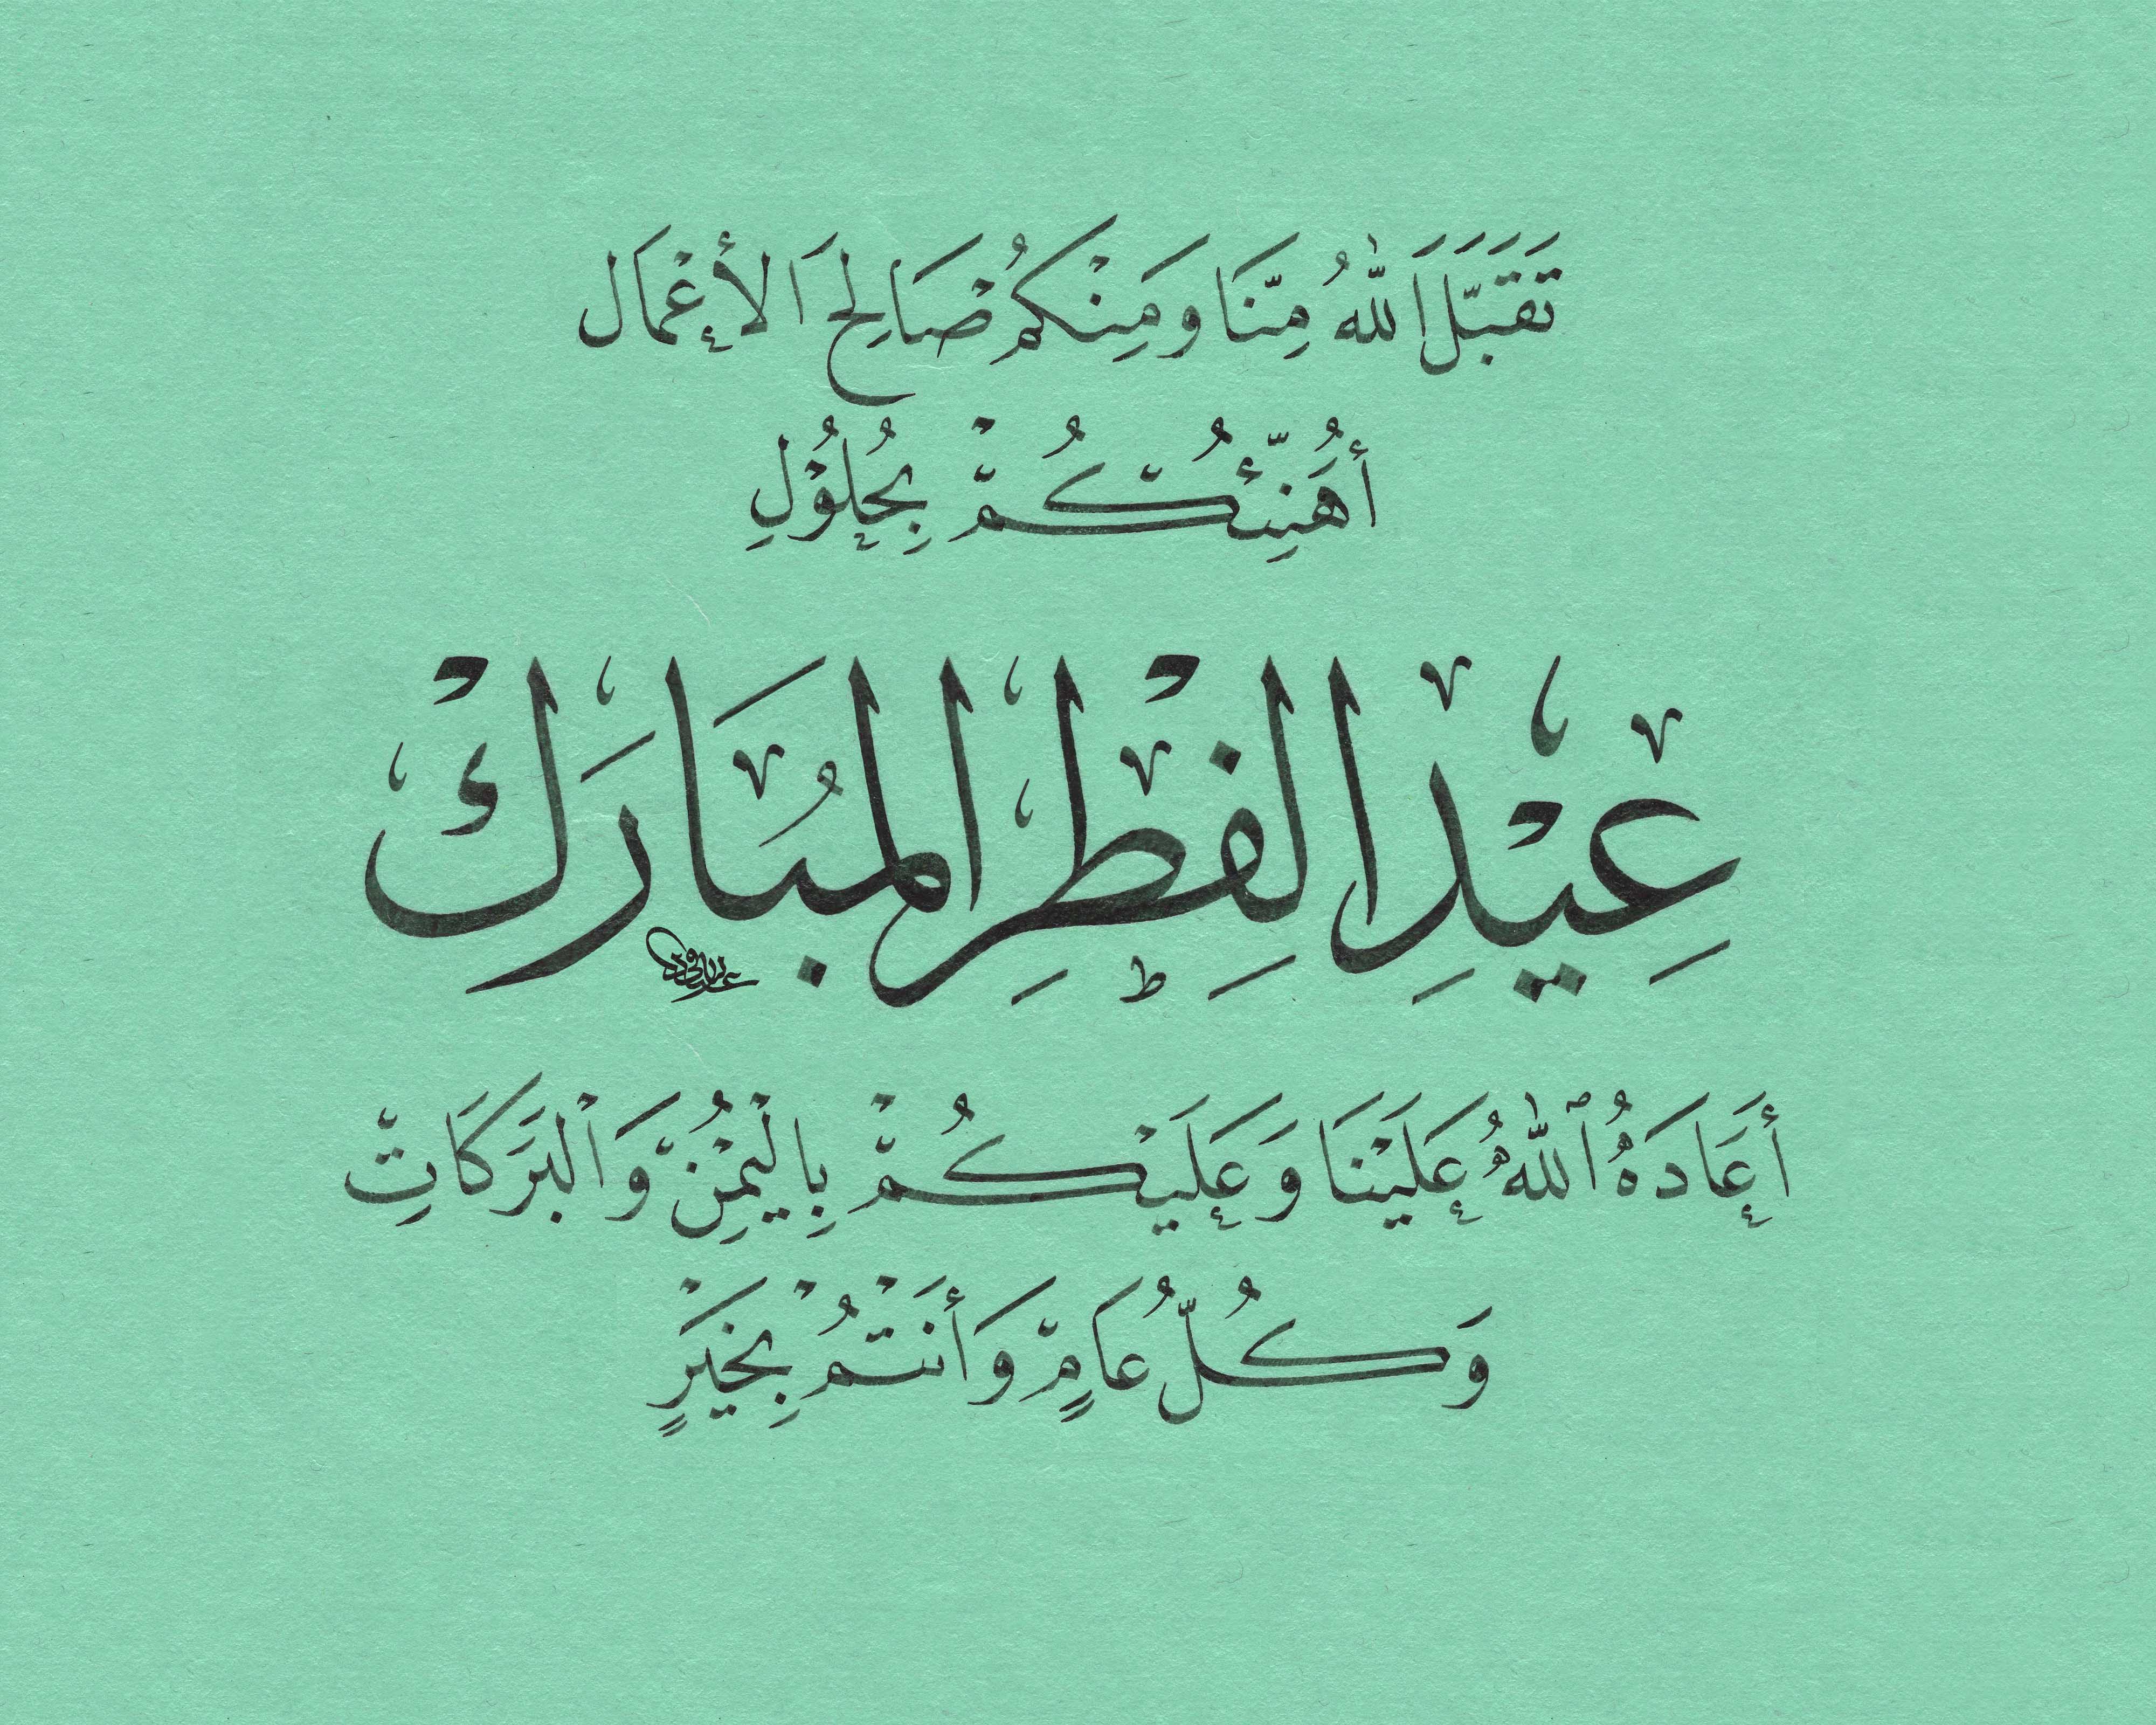 تَقَبَّلَ اَللّٰهُ مِنَّا وَمِنْكُمْ صَالِحَ اَلأَعْمَال
أُهَنِّئُكُمْ بِحُلُوْلِ
عِيْدِ الفِطْرِ المُبَارَكْ
أَعَادَهُ ٱللّٰهُ عَلَيْنَا وَعَلَيْكُمْ بِالْيُمْنِ وَالْبَرَكَاتِ
وَكُلُّ عَامٍ وَأَنْتُمْ بِخَيْرٍ